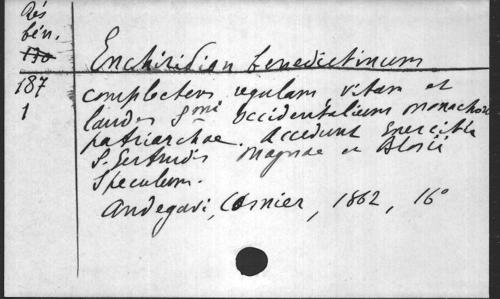 Rés
bén.
130
187
1
Enchiridion benedictinum
complectens regulam vitam et
laudes Smi occidentalium monachor
patriarchae. Accedunt Exercitia
S. Gertrudis Magnae et Blosii
Speculum.
Andegavi, Cosnier, 1862, 16°